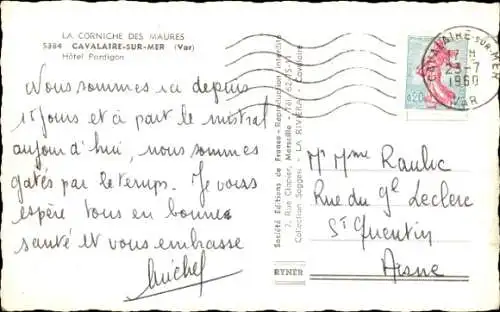 LA CORNICHE DES MAURES
5384 CAVALAIRE-SUR-MER (Var)
Hôtel Pardigon
Nous sommes ici depuis
15 jours et à part le mistral
aujourd'hui, nous sommes
gatés par le temps. Je vous
espère tous en bonne
santé et vous embrasse
Michel
Société Editions de France - Reproduction interdite
7, Rue Clapier, Marseille - Tél. 62-15-14
Collection Soggesi - LA RIVIERA - Cavalaire
RYNER
CAVALAIRE-SUR-MER
23-7
1960
VAR
0,20
Mr Mme Raulic
Rue du Gl Leclerc
St Quentin
Aisne